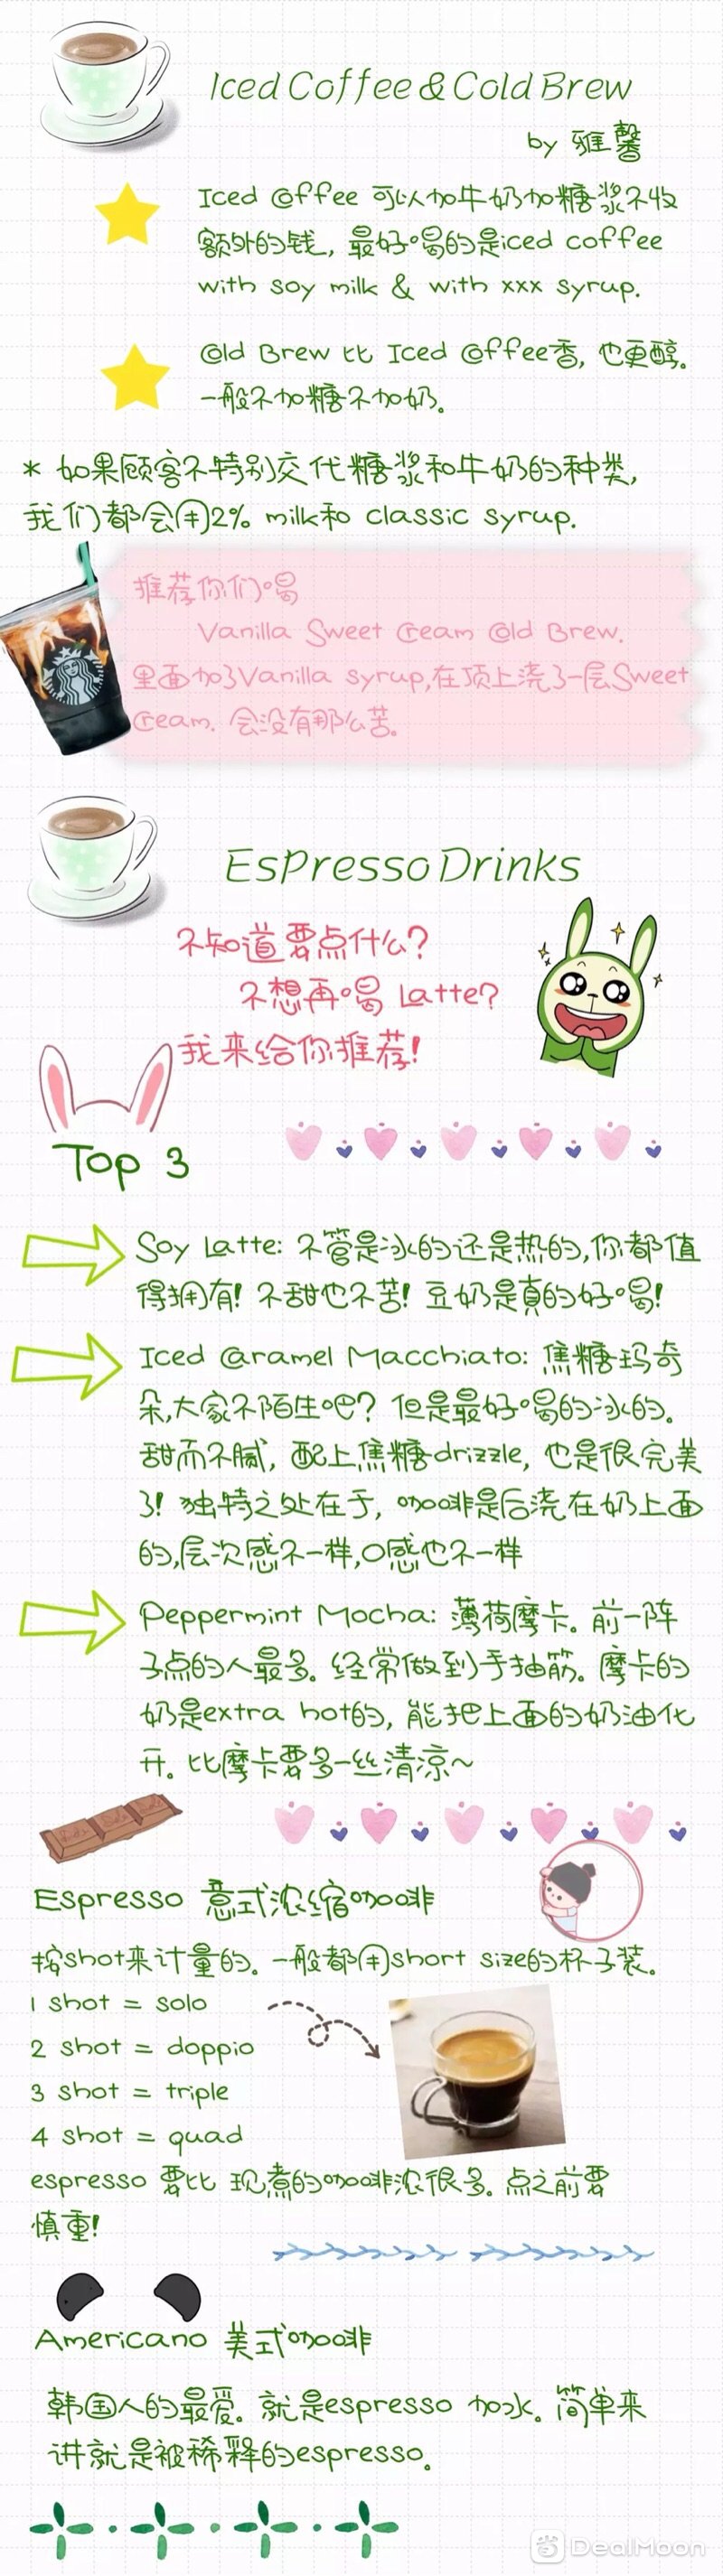 Iced Coffee & Cold Brew
by 雅馨
Iced Coffee 可以加牛奶加糖浆不收
额外的钱, 最好喝的是iced coffee
with soy milk & with xxx syrup.
Cold Brew 比 Iced Coffee香, 也更醇。
一般不加糖不加奶。
* 如果顾客不特别交代糖浆和牛奶的种类,
我们都会用2% milk和 classic syrup.
推荐你们喝
Vanilla Sweet Cream Cold Brew.
里面加了Vanilla syrup,在顶上浇了一层Sweet
Cream. 会没有那么苦。
Espresso Drinks
不知道要点什么?
不想再喝 Latte?
我来给你推荐!
Top 3
Soy Latte: 不管是冰的还是热的,你都值
得拥有! 不甜也不苦! 豆奶是真的好喝!
Iced Caramel Macchiato: 焦糖玛奇
朵,大家不陌生吧? 但是最好喝的冰的。
甜而不腻, 配上焦糖drizzle, 也是很完美
了! 独特之处在于, 咖啡是后浇在奶上面
的,层次感不一样,口感也不一样
Peppermint Mocha: 薄荷摩卡。前一阵
子点的人最多。经常做到手抽筋。摩卡的
奶是extra hot的, 能把上面的奶油化
开。比摩卡要多一丝清凉~
Espresso 意式浓缩咖啡
按shot来计量的。一般都用short size的杯子装。
1 shot = solo
2 shot = doppio
3 shot = triple
4 shot = quad
espresso 要比 现煮的咖啡浓很多。点之前要
慎重!
Americano 美式咖啡
韩国人的最爱。就是espresso 加水。简单来
讲就是被稀释的espresso。
省 DealMoon